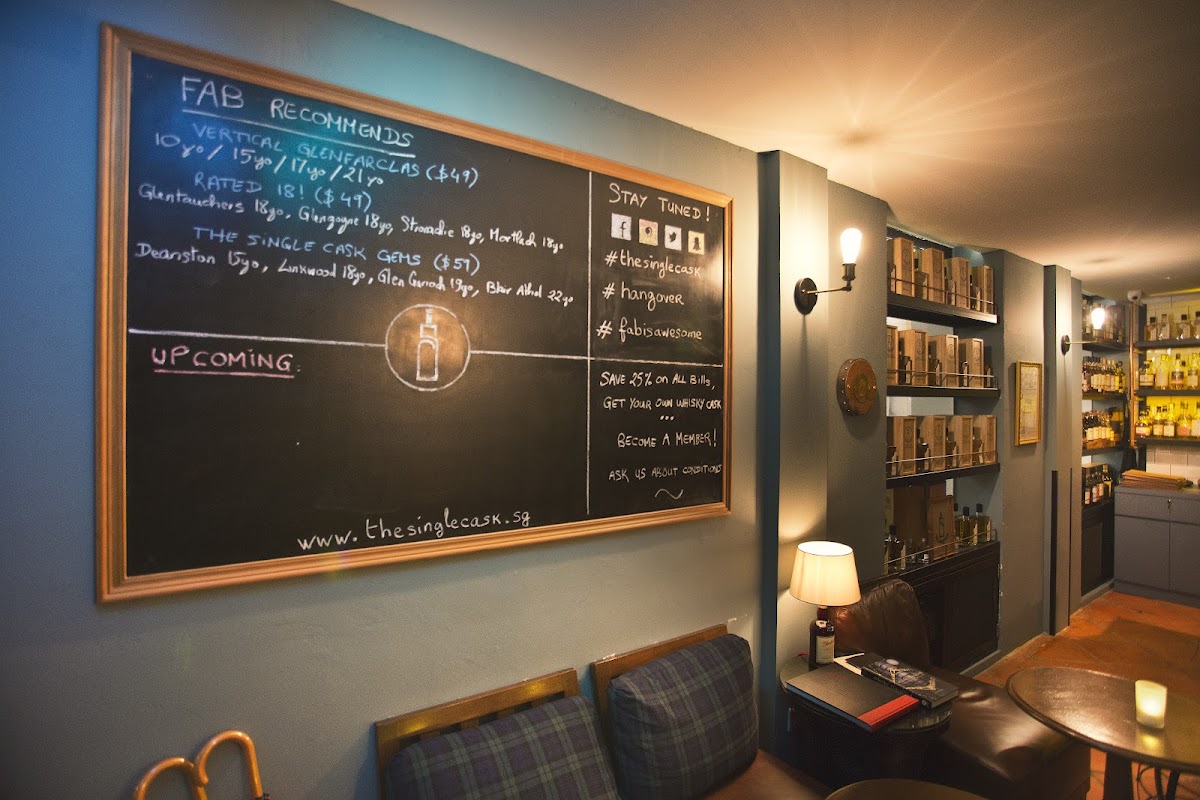 FAB RECOMMENDS
VERTICAL GLENFARCLAS ($49)
10yo/ 15yo/17yo/21yo
RATED 18! ($49)
Glentauchers 18yo, Glengoyne 18yo, Stronadie 18yo, Mortlach 18yo
THE SINGLE CASK GEMS ($59)
Deanston 15yo, Linkwood 18yo, Glen Garioch 19yo, Blair Athol 22yo
UPCOMING:
www.thesinglecask.sg
STAY TUNED!
#thesinglecask
# hangover
# fabisawesome
SAVE 25% on ALL Bills,
GET YOUR OWN WHISKY CASK
...
BECOME A MEMBER!
ASK US ABOUT CONDITIONS